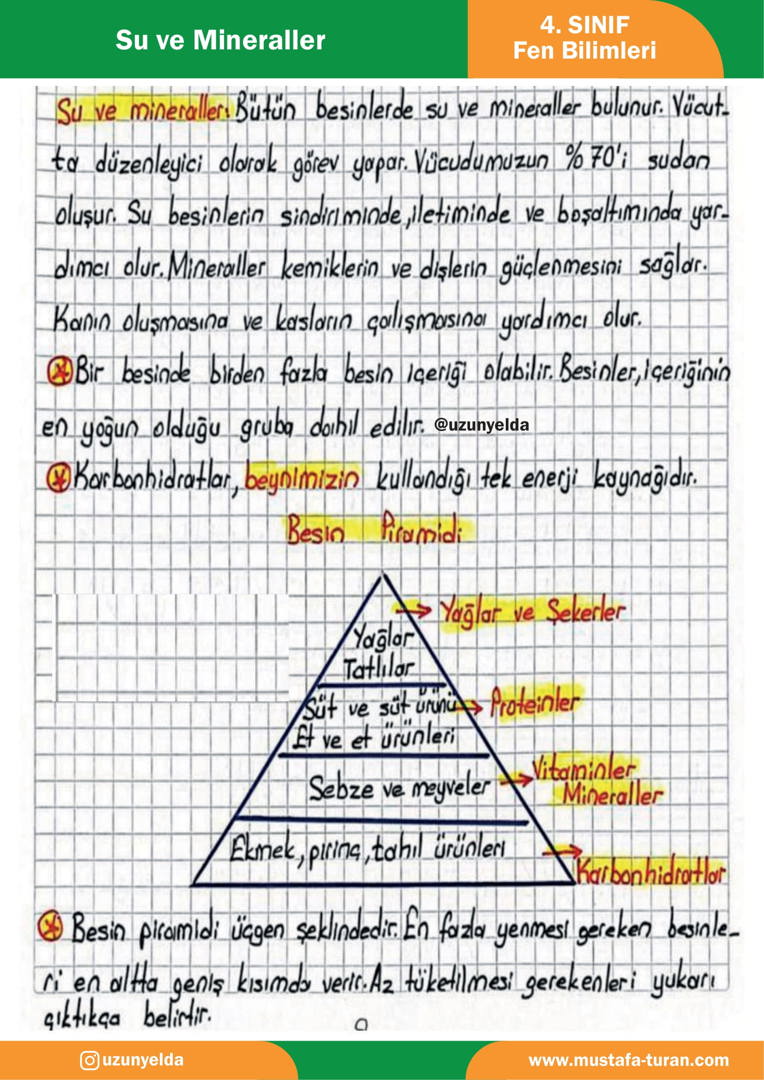 Su ve Mineraller
4. SINIF
Fen Bilimleri
Su ve mineraller: Bütün besinlerde su ve mineraller bulunur. Vücut-
ta düzenleyici olarak görev yapar. Vücudumuzun %70'i sudan
oluşur. Su besinlerin sindiriminde, iletiminde ve boşaltımında yar-
dımcı olur. Mineraller kemiklerin ve dişlerin güçlenmesini sağlar.
Kanın oluşmasına ve kasların çalışmasına yardımcı olur.
Bir besinde birden fazla besin içeriği olabilir. Besinler, içeriğinin
en yoğun olduğu gruba dahil edilir. @uzunyelda
Karbonhidratlar, beynimizin kullandığı tek enerji kaynağıdır.
Besin Piramidi
Yağlar ve Şekerler
Yağlar
Tatlılar
Süt ve süt ürünü
Proteinler
Et ve et ürünleri
Vitaminler
Sebze ve meyveler
Mineraller
Ekmek, pirinç, tahıl ürünleri
Karbonhidratlar
Besin piramidi üçgen şeklindedir. En fazla yenmesi gereken besinle-
ri en altta geniş kısımda verir. Az tüketilmesi gerekenleri yukarı
çıktıkça belirtir.
uzunyelda
www.mustafa-turan.com